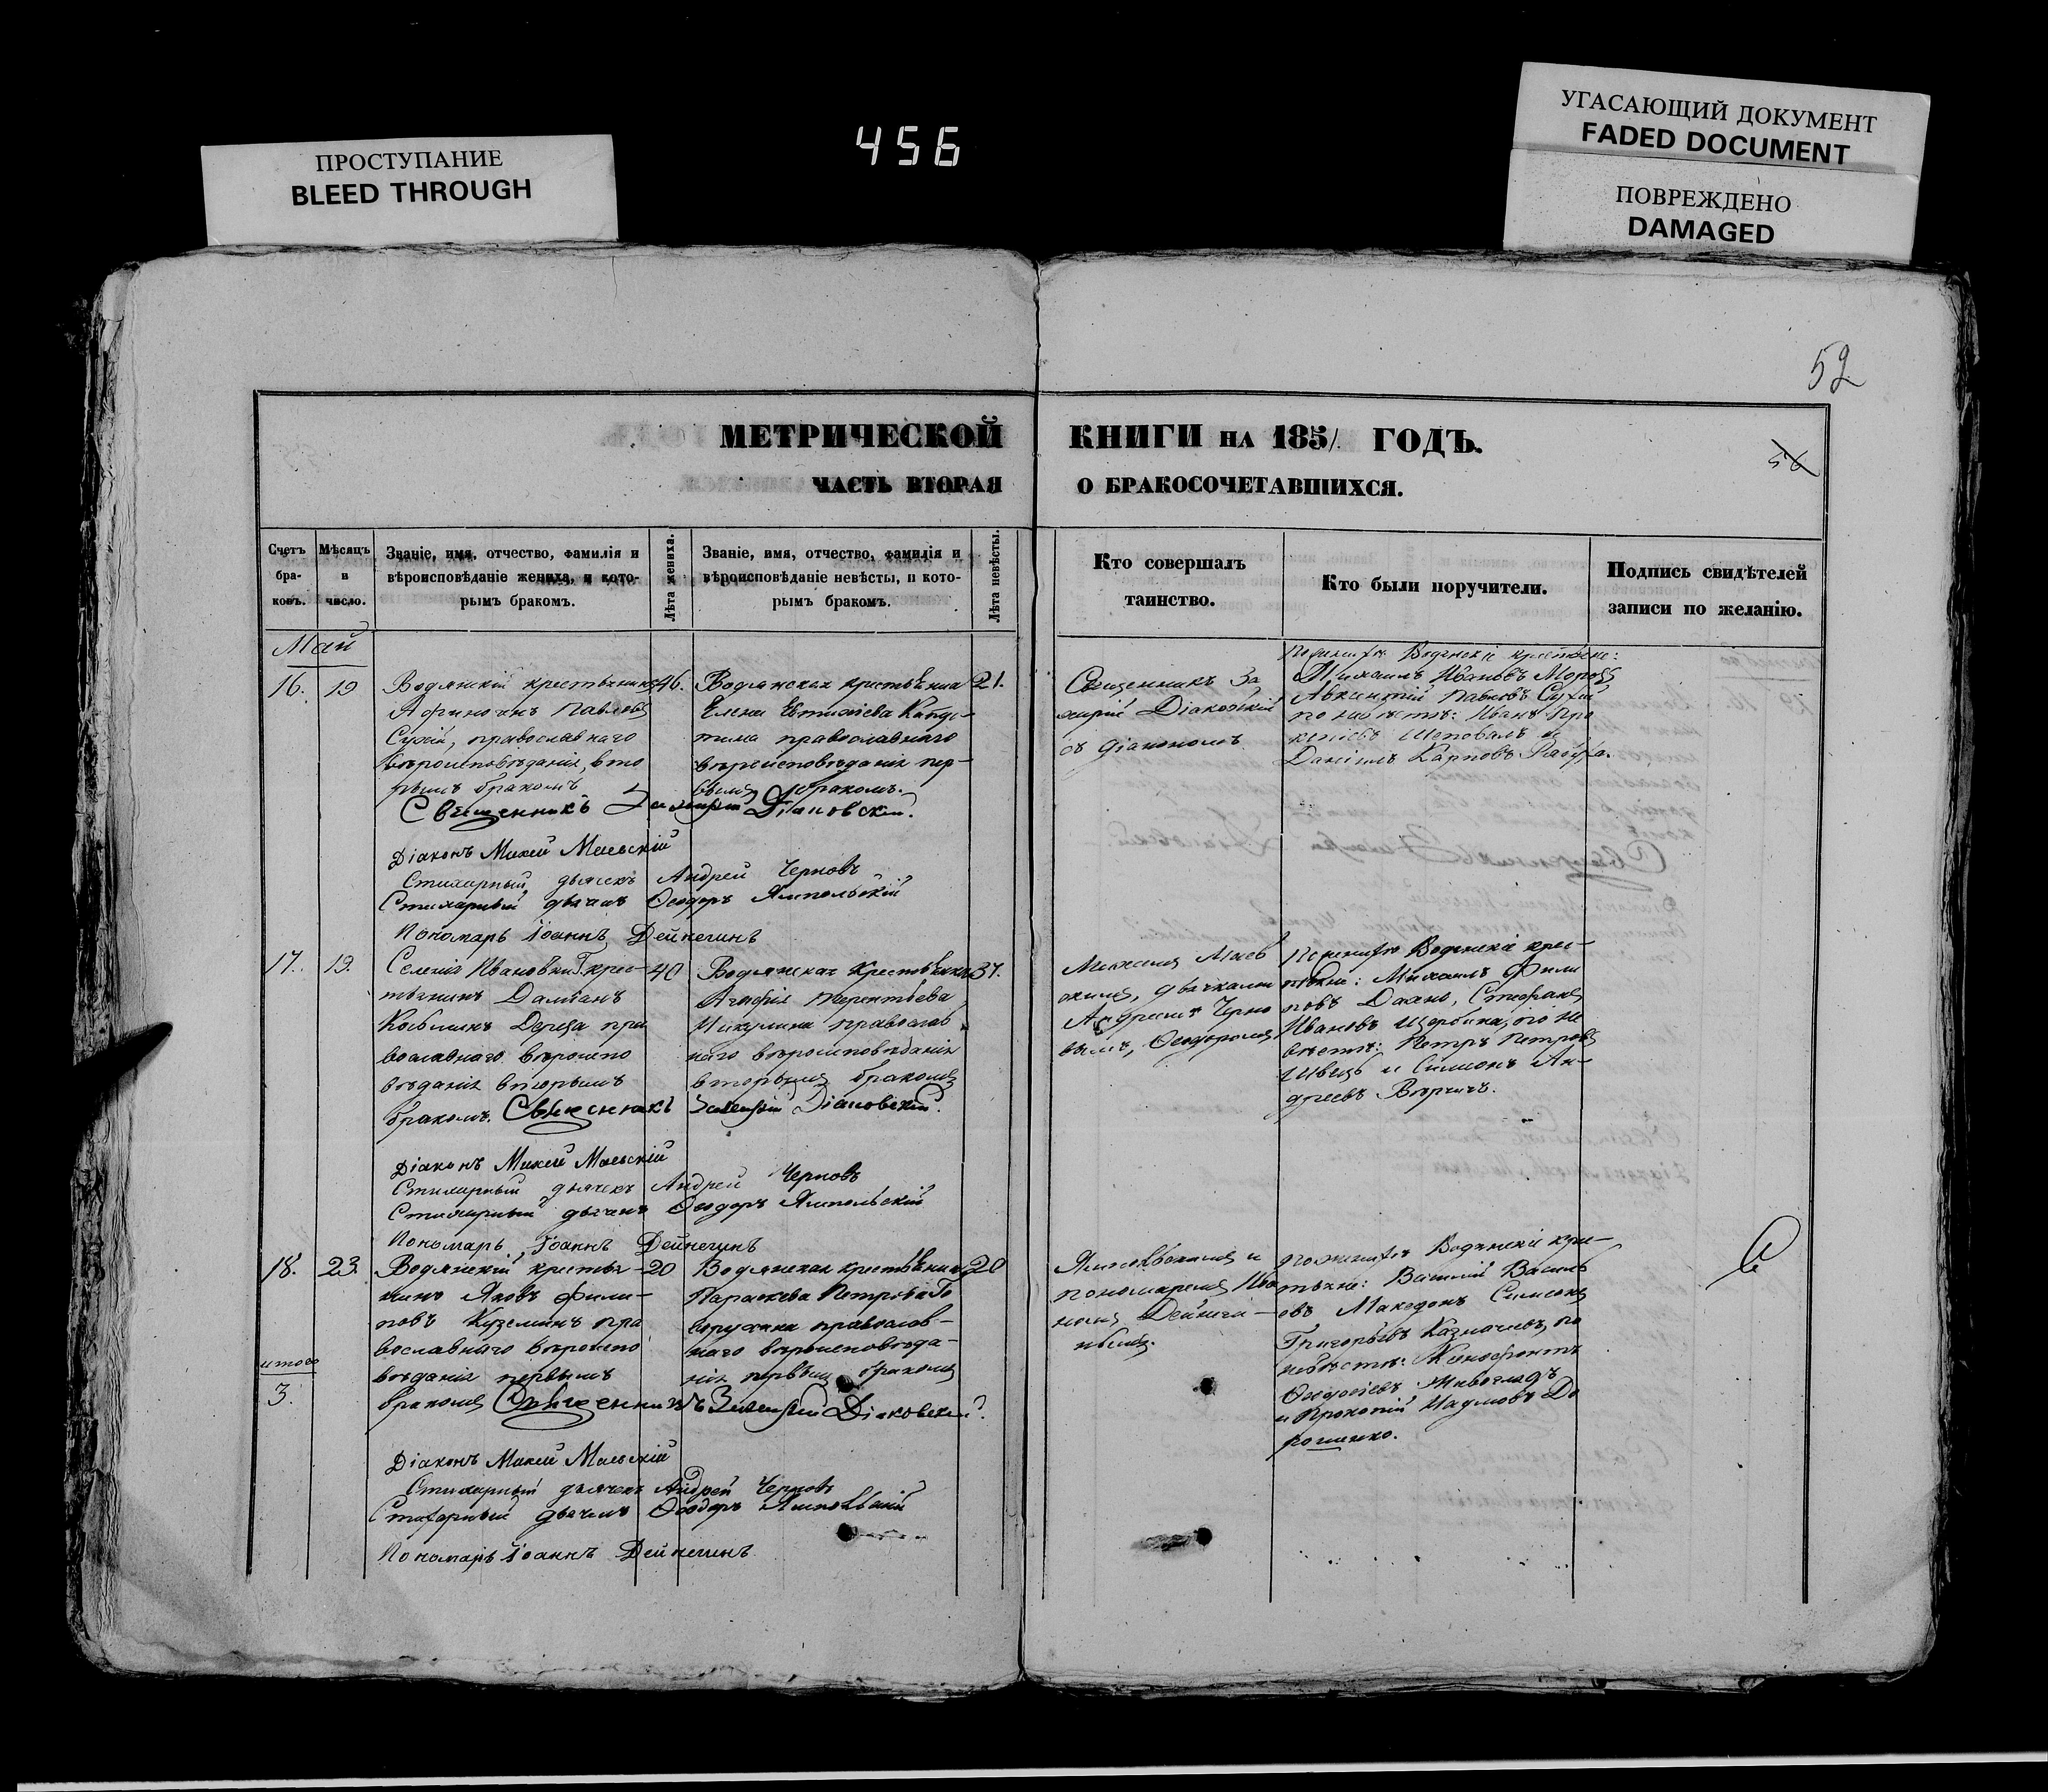 ПРОСТУПАНИЕ
BLEED THROUGH
456
УГАСАЮЩИЙ ДОКУМЕНТ
FADED DOCUMENT
ПОВРЕЖДЕНО
DAMAGED
52
МЕТРИЧЕСКОЙ КНИГИ НА 1851 ГОДЪ.
56
ЧАСТЬ ВТОРАЯ О БРАКОСОЧЕТАВШИХСЯ.
Счетъ
бра-
ковъ.
Мѣсяцъ
и
число.
Званіе, имя, отчество, фамилія и
вѣроисповѣданіе жениха, и кото-
рымъ бракомъ.
Лѣта жениха.
Званіе, имя, отчество, фамилія и
вѣроисповѣданіе невѣсты, и кото-
рымъ бракомъ.
Лѣта невѣсты.
Кто совершалъ
таинство.
Кто были поручители.
Подпись свидѣтелей
записи по желанію.
Май
16.
19
Водянскій крестьянинъ
Павловъ
Сухій, православнаго
вѣроисповѣданія, вто
рымъ бракомъ
46.
Водянская крестьянка
Елена
православнаго
вѣроисповѣданія пер-
вымъ бракомъ.
21.
Священникъ За
харій Діаковскій
съ діакономъ
Водянскіе крестьяне:
Михаилъ Ивановъ Морозъ
Авксентій Павловъ Сухій
по невѣстѣ: Иванъ Про
копіевъ Шаповалъ и
Даніилъ Карповъ
Священникъ Захарій Діаковскій.
Діаконъ Михей Маевскій
Стихарный дьячекъ Андрей Черновъ
Стихарный дьячекъ Ѳеодоръ Ямпольскій
Пономарь Іоаннъ Дейнегинъ
17.
19.
Селенія Ивановки Г. крес-
тьянинъ Даміанъ
пра
вославнаго вѣроиспо
вѣданія вторымъ
бракомъ.
40
Водянская крестьянка
Агафія Терентьева
Микулина православ
наго вѣроисповѣданія
вторымъ бракомъ
37.
Михеемъ Маев
скимъ, дьячками
Андреемъ Черно
вымъ, Ѳеодоромъ
По женихѣ Водянскіе крес-
тьяне: Михаилъ Фили
повъ Стефанъ
Ивановъ Щербина, по не
вѣстѣ: Петръ Петровъ
Швець и Симонъ Ан-
дреевъ
Священникъ Захарій Діаковскій.
Діаконъ Михей Маевскій
Стихарный дьячекъ Андрей Черновъ
Стихарный дьячекъ Ѳеодоръ Ямпольскій
Пономарь Іоаннъ Дейнегинъ
18.
23.
Водянскій крестья-
нинъ Яковъ Фили-
повъ Куземинъ пра
вославнаго вѣроиспо
вѣданія первымъ
бракомъ
20
Водянская крестьянка
Параскева Петрова
православ-
наго вѣроисповѣда-
нія первымъ бракомъ
20
Ямпольскимъ и
пономаремъ Іоан
номъ Дейнеги-
нымъ.
По женихѣ Водянскіе крес-
тьяне: Василій Василь
евъ Македонъ Симеонъ
Григорьевъ Казначеевъ, по
невѣстѣ: Ксенофонтъ
Ѳеодосіевъ Живоглядъ
и Прокопій Наумовъ До
рошенко.
итого
3.
Священникъ Захарій Діаковскій.
Діаконъ Михей Маевскій
Стихарный дьячекъ Андрей Черновъ
Стихарный дьячекъ Ѳеодоръ Ямпольскій
Пономарь Іоаннъ Дейнегинъ